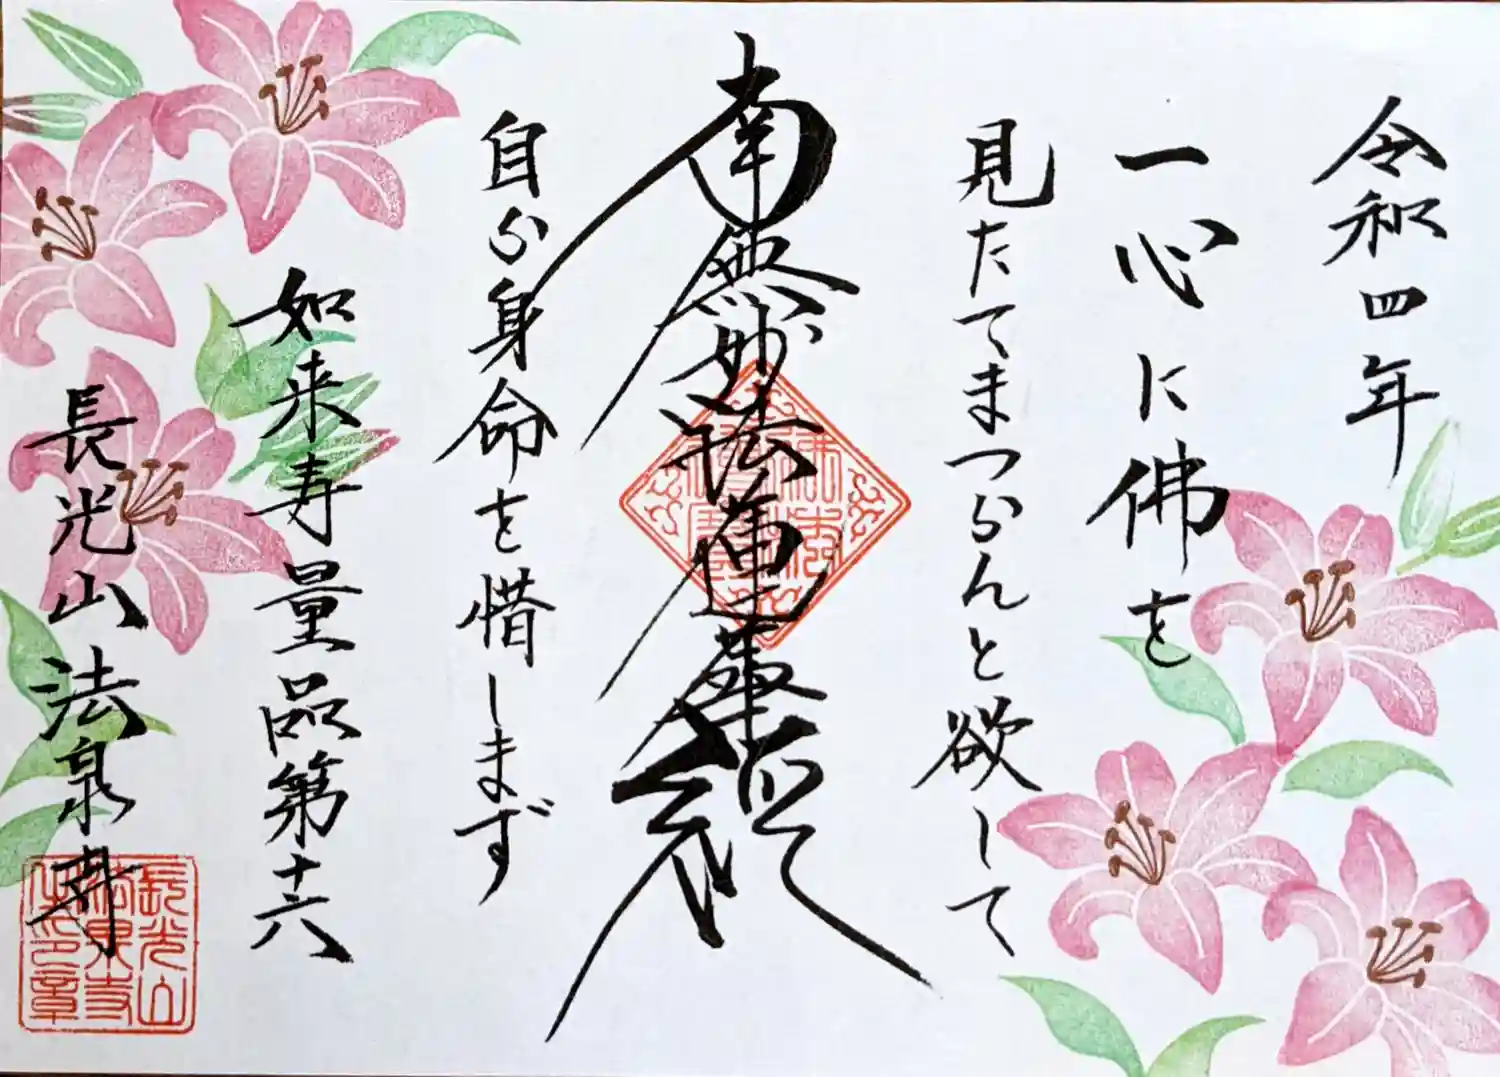 令和四年
一心に佛を
見たてまつらんと欲して
南無妙法蓮華経
自ら身命を惜しまず
如来寿量品第十六
長光山法泉寺